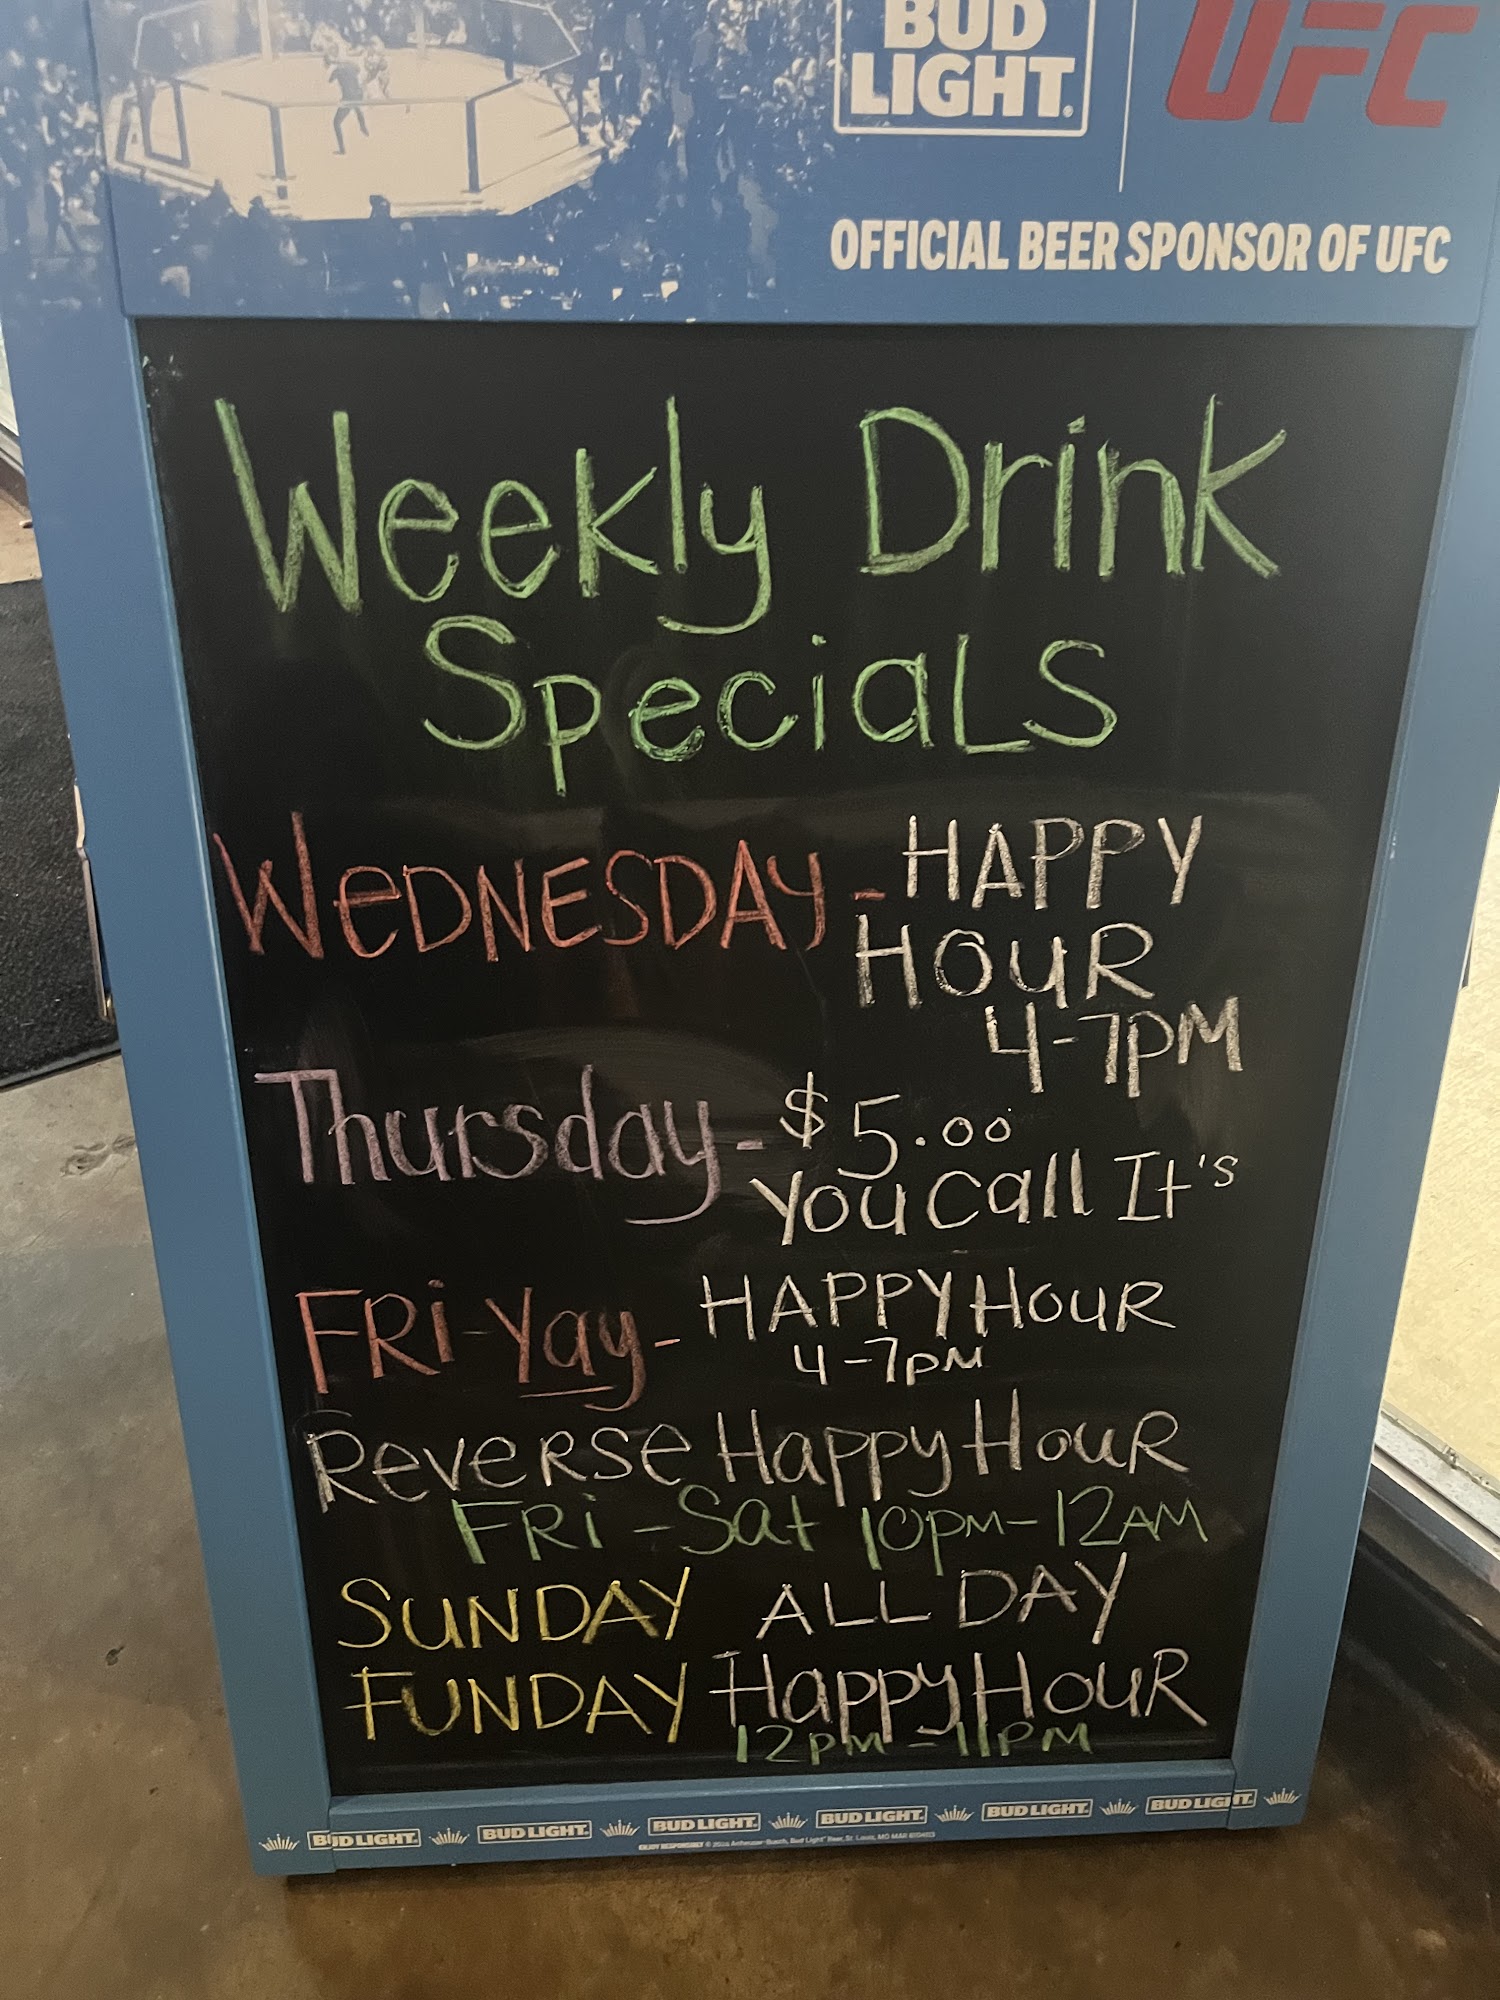 BUD LIGHT. UFC
OFFICIAL BEER SPONSOR OF UFC
Weekly Drink
Specials
WeDNESDAY - HAPPY
HOUR
4-7PM
Thursday - $5.00
You Call It's
FRi-Yay - HAPPY HOUR
4-7PM
ReveRSe Happy HouR
FRi - Sat 10PM-12AM
SUNDAY ALL DAY
FUNDAY Happy HouR
12PM-11PM
BUD LIGHT. BUD LIGHT. BUD LIGHT. BUD LIGHT. BUD LIGHT. BUD LIGHT.